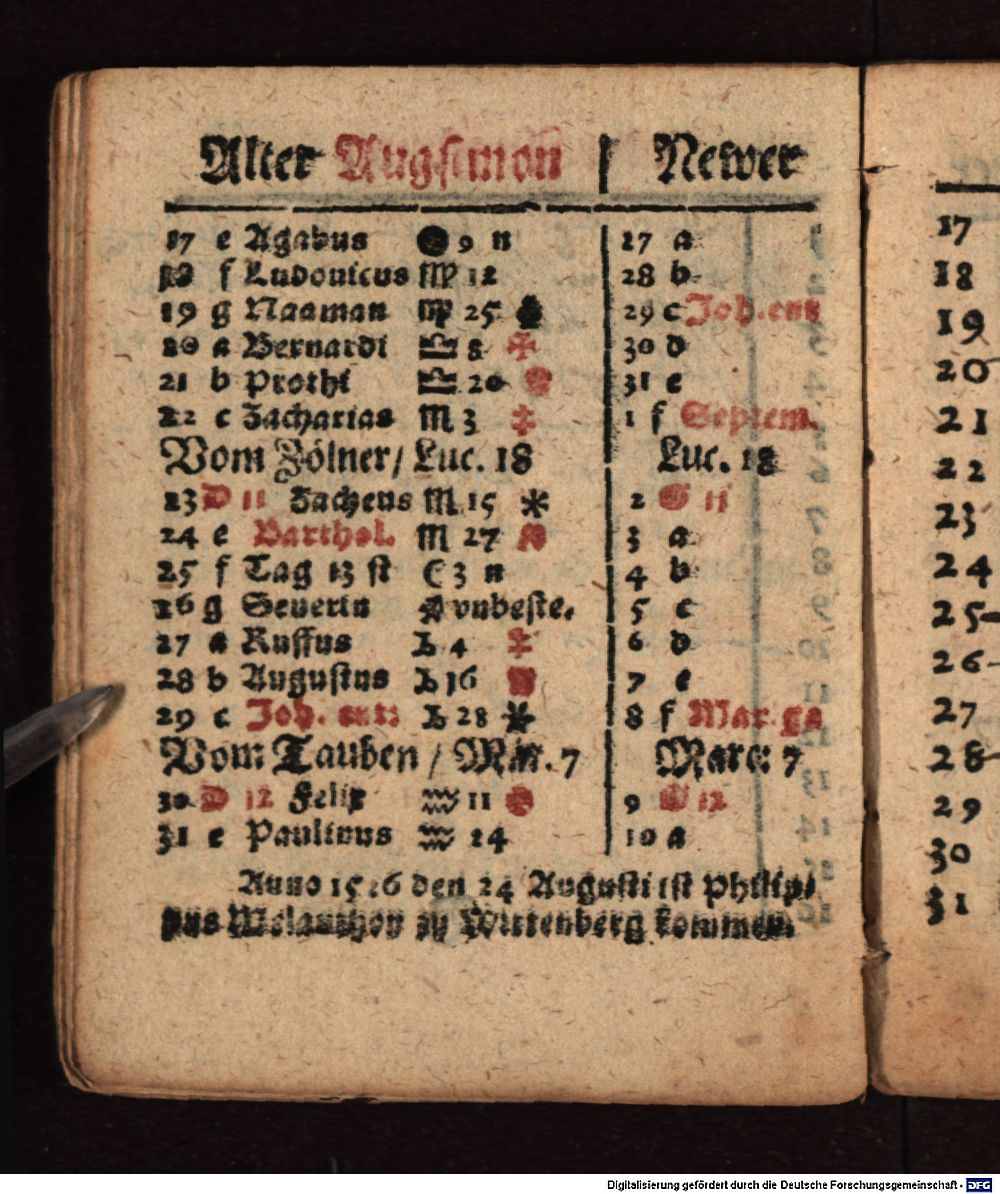 Alter Augstmon | Newer
17 e Agabus ● 9 n | 27 a
18 f Ludouicus ♍ 12 | 28 b
19 g Naaman ♍ 25 | 29 c Joh. ent
20 a Bernardi ♎ 8 ✠ | 30 d
21 b Prothi ♎ 20 | 31 e
22 c Zacharias ♏ 3 | 1 f Septem.
Vom Zölner / Luc. 18 | Luc. 18
23 D 11 Zacheus ♏ 15 * | 2 G 11
24 e Barthol. ♏ 27 | 3 a
25 f Tag 13 st ☾ 3 n | 4 b
26 g Seuerin vnbeste. | 5 c
27 a Ruffus 4 | 6 d
28 b Augustus 16 | 7 e
29 c Joh. ent 28 * | 8 f Mar. ge
Vom Tauben / Mar. 7 | Marc. 7
30 D 12 Felix ♒ 11 | 9 G 12
31 e Paulinus ♒ 24 | 10 a
Anno den 24 Augusti ist Philip-
pus Melanthon zu Wittenberg kommen.
17
18
19
20
21
22
23
24
25
26
27
28
29
30
31
Digitalisierung gefördert durch die Deutsche Forschungsgemeinschaft - DFG